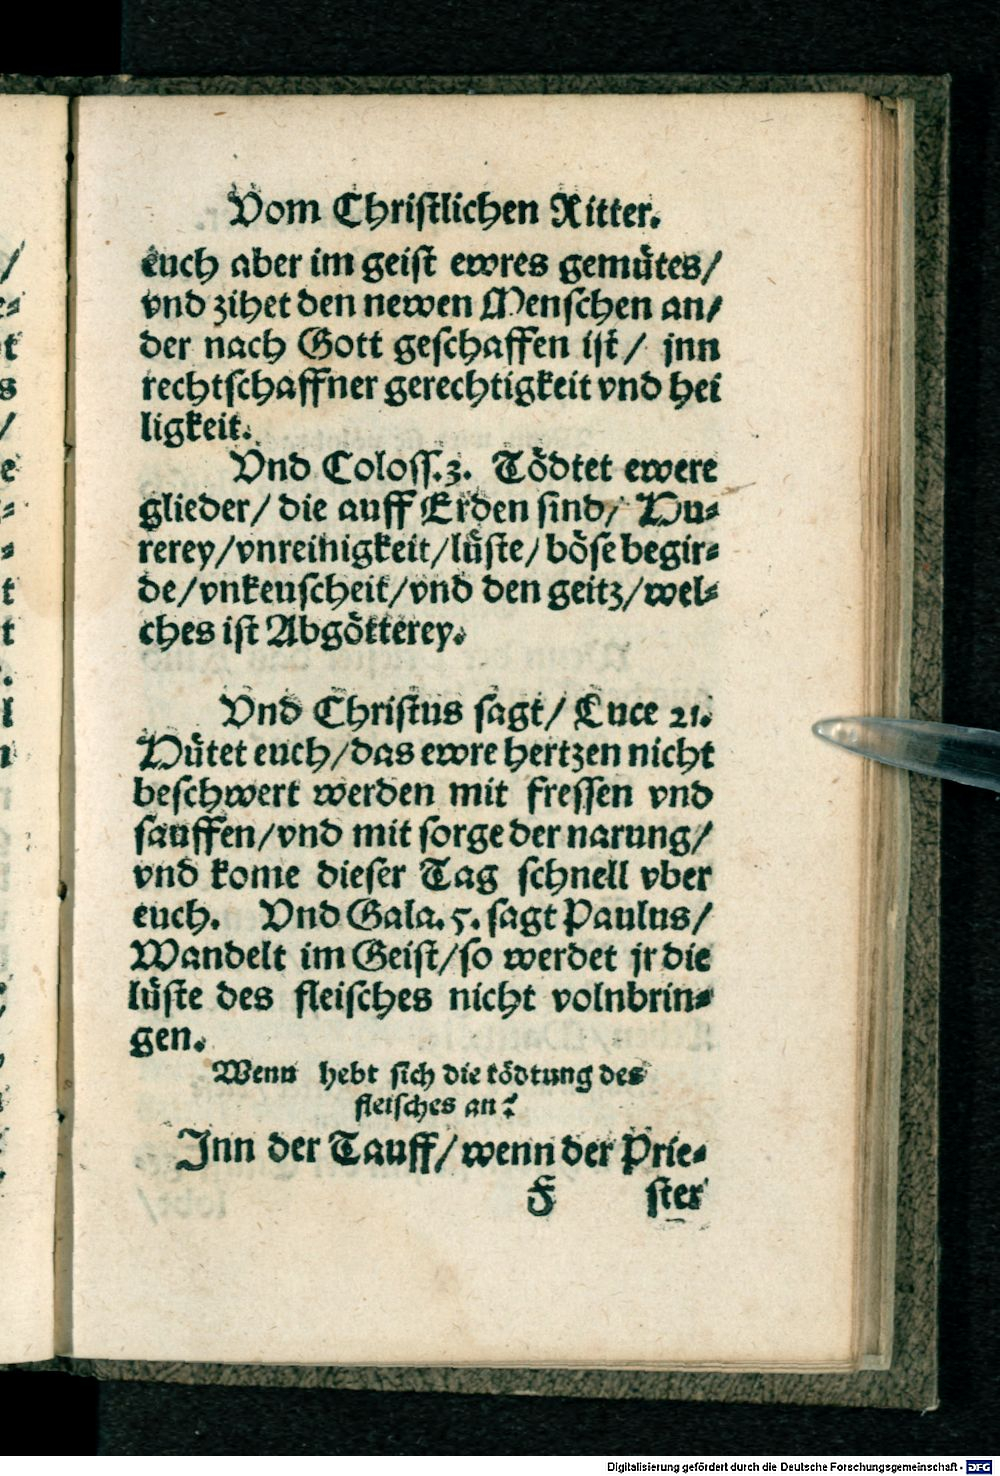 Vom Christlichen Ritter.
euch aber im geist ewres gemütes/
vnd zihet den newen Menschen an/
der nach Gott geschaffen ist/ jnn
rechtschaffner gerechtigkeit vnd hei
ligkeit.
Vnd Coloss.3. Tödtet ewere
glieder/ die auff Erden sind/ Hu-
rerey/vnreinigkeit/lüste/böse begir-
de/vnkeuscheit/vnd den geitz/wel-
ches ist Abgötterey.
Vnd Christus sagt/ Luce 21.
Hütet euch/das ewre hertzen nicht
beschwert werden mit fressen vnd
sauffen/vnd mit sorge der narung/
vnd kome dieser Tag schnell vber
euch. Vnd Gala.5. sagt Paulus/
Wandelt im Geist/so werdet jr die
lüste des fleisches nicht volnbrin-
gen.
Wenn hebt sich die tödtung des
fleisches an?
Jnn der Tauff/wenn der Prie-
F ster
Digitalisierung gefördert durch die Deutsche Forschungsgemeinschaft - DFG